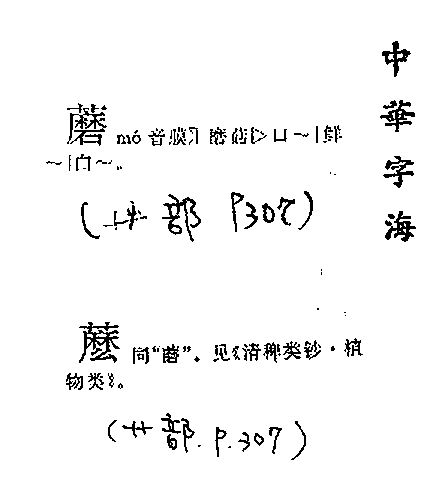 中華字海
蘑 mó 音膜〖蘑菇〗口～|鲜
～|白～。
(艹部 P307)
同“蘑”。见《清稗类钞·植
物类》。
(艹部. P.307)